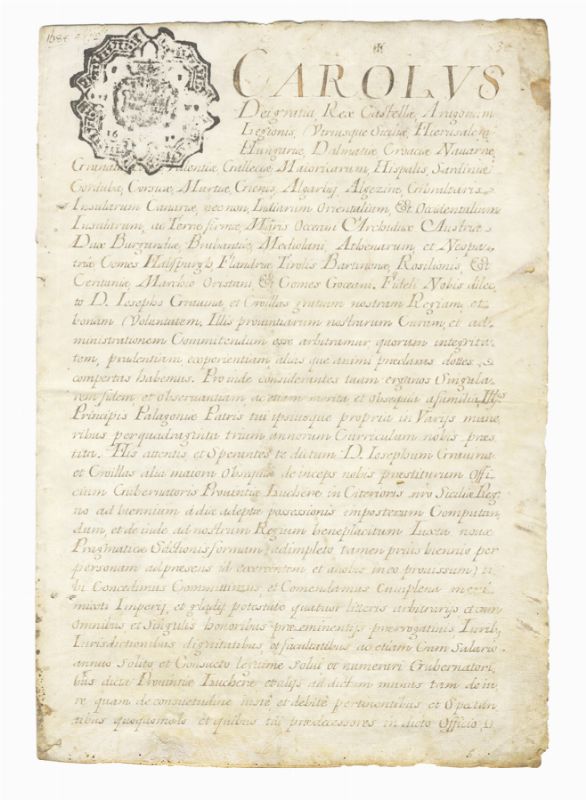 CAROLVS
Dei gratia, Rex Castellæ, Aragonum
Legionis, Vtriusque Siciliæ, Hierusalem
Hungariæ, Dalmatiæ Croaciæ Nauarræ,
Granatæ Galleciæ Maioricarum, Hispalis, Sardiniæ
Cordubæ, Corsicæ, Murtiæ, Gienis, Algarbij Algeziræ, Gibraltaris
Insularum Canariæ, nec non, Indiarum Orientalium, & Occidentalium
Insularum, ac Terræ firmæ, Maris Oceani Archidux Austriæ
Dux Burgundiæ, Brabantiæ, Mediolani, Athenarum, et Neopa-
triæ Comes Habspurgÿ Flandriæ Tirolis Barcinonæ, Rosilionis, &
Ceritaniæ, Marchio Oristani, & Comes Goceani. Fideli Nobis dilec-
to D. Iosepho Grauina et Croillas gratiam nostram Regiam et
bonam Voluntatem, Illis prouintiarum nostrarum Curam, et ad-
ministrationem Committendum esse arbitramur quorum integrita-
tem, prudentiam, experientiam alias que animi præclaras dottes
compertas habemus. Proinde considerantes tuam erga nos Singula-
rem fidem et obseruantiam, ac etiam merita et obsequia Ill.
Principis Palagoniæ Patris tui ipsiusque propria in Varÿs mune-
ribus per quadraginta trium annorum Curriculum nobis præs-
tita. His attentis et Sperantes te dictum D. Iosephum Grauina
et Croillas alia maiora Obsequia de inceps nobis præstiturum Offi-
cium Gubernatoris Prouintiæ Luceræ in Citerioris Siciliæ Reg-
no ad biennium a die adeptæ possessionis imposterum Computan-
dum, et de inde ad nostrum Regium beneplacitum Iuxta nouæ
Pragmaticæ formam adimpleto tamen prius biennio per
personam ad præsens id exercentem et a nobis in eo prouissum ti-
bi Concedimus Committimus, et Comendamus Cum plena meri
mixti Imperÿ, et gladÿ potestate quatuor litteris arbitrarÿs et cum
omnibus et Singulis honoribus præeminentÿs prærrogatiuis, Iurib,
Iurisdictionibus dignitatibus, et facultatibus ac etiam Cum Salario
annuo Solito et Consueto Solui et numerari Gubernatori-
bus dictæ Prouintiæ Luceræ et alÿs ad dictum munus tam de iu-
re quam de consuetudine iuste, et debite pertinentibus et Spectan-
tibus quoquomodo et quibus tui prædecessores in dicto Officio